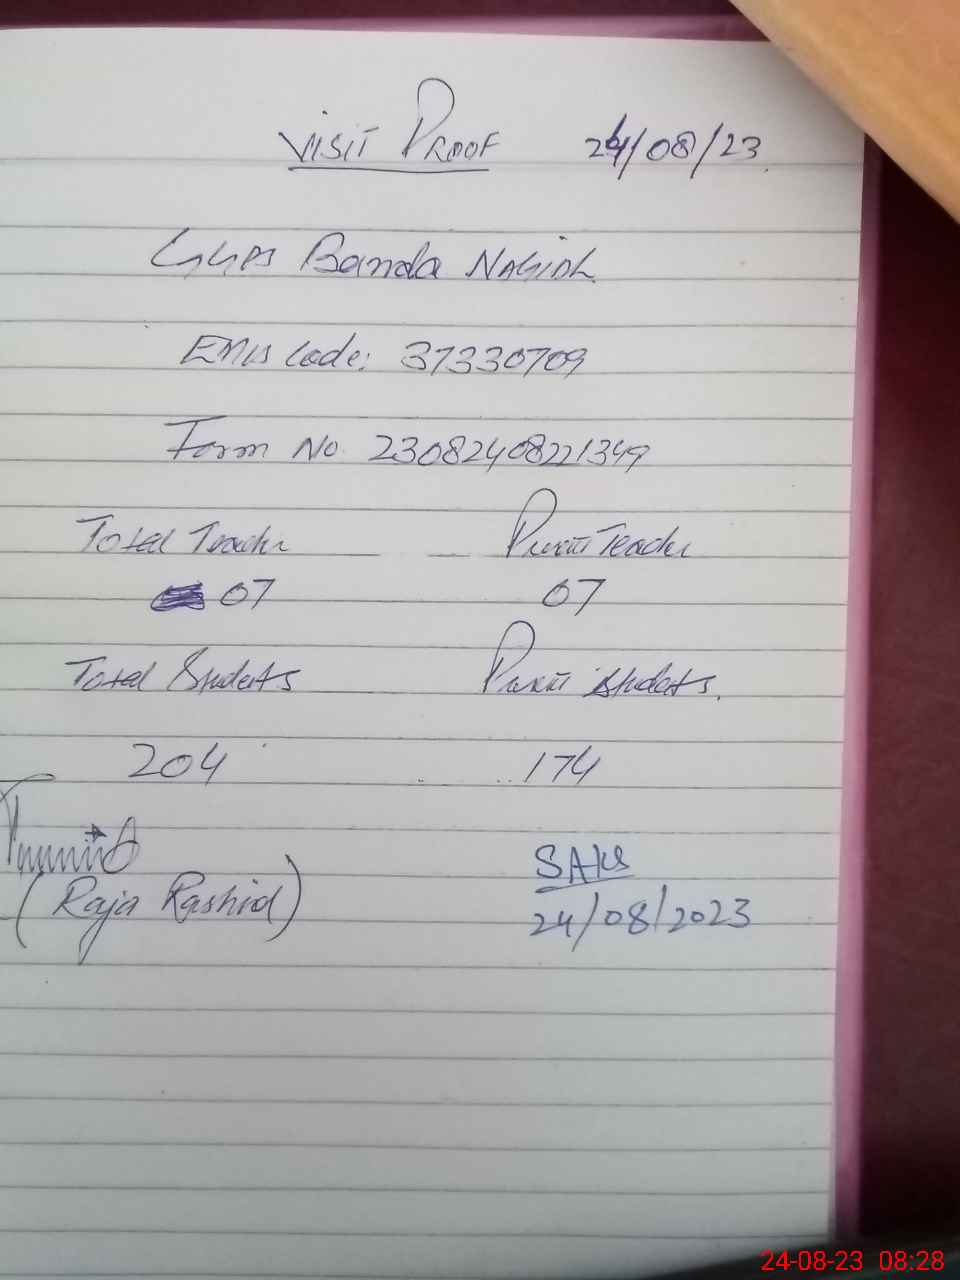 VISIT PROOF 24/08/23
GGPS Banda NAGIAL
EMIS Code: 37330709
Form No. 23082408221349
Total Teacher Present Teacher
07 07
Total Students Present Students.
204 174
(Raja Rashid)
24/08/2023
24-08-23 08:28